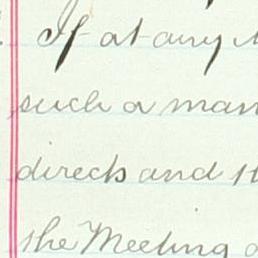 If at any
such a man
directs and th
the Meeting